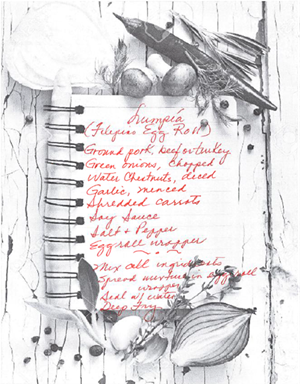 Lumpia
(Filipino Egg Roll)
Ground pork, beef or turkey
Green onions, chopped
Water Chestnuts, diced
Garlic, minced
Shredded carrots
Soy Sauce
Salt & Pepper
Eggroll wrapper
Mix all ingredients
Spread mixture in eggroll
wrapper
Seal w/ water
Deep Fry